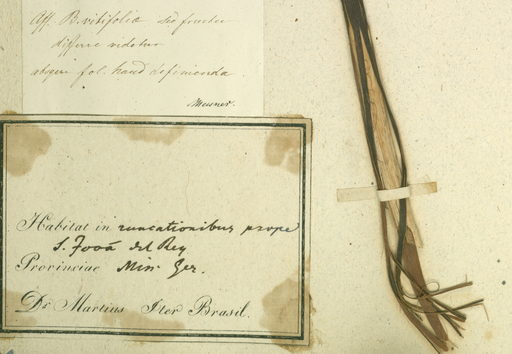 Aff. B. vitifoliae sed fructu
differre videtur
absque fol. haud definienda.
Meisner.
Habitat in runcationibus prope
S. Jooá del Rey
Provinciae Min. Ger.
Dr. Martius Iter Brasil.